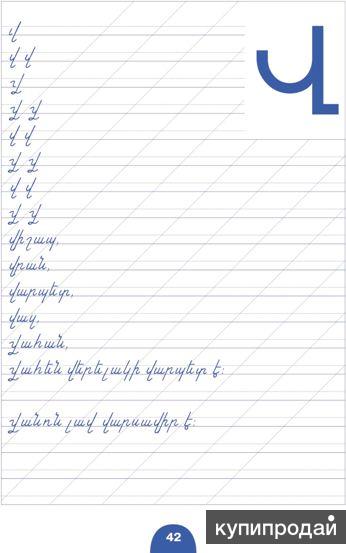 Վ
վ
վ վ
Վ
Վ Վ
վ վ
Վ Վ
վ վ
Վ Վ
վիշապ,
վրան,
վարպետ,
վազ,
Վահան,
Վահեն վերելակի վարպետ է:
Վանոն լավ վարսավիր է:
42
купипродай